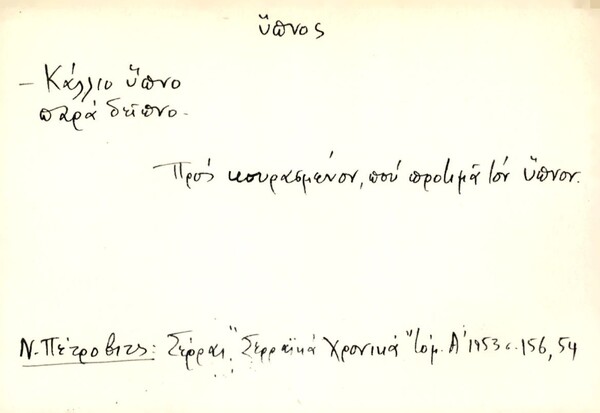 ὕπνος
– Κάλλιο ὕπνο
παρά δεῖπνο.
Πρός κουρασμένον, πού προτιμᾶ τόν ὕπνον.
Ν. Πέτροβιτς: Σέρραι. "Σερραϊκά Χρονικά" τόμ. Α' 1953 σ. 156, 54